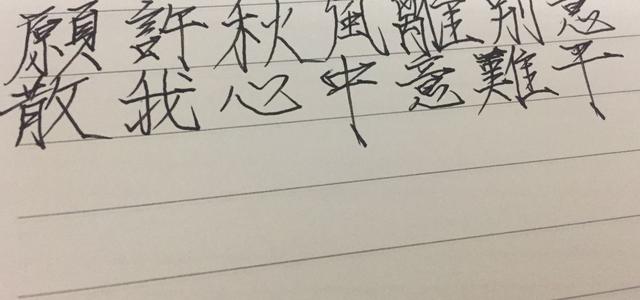 願許秋風離別
散我心中意難平